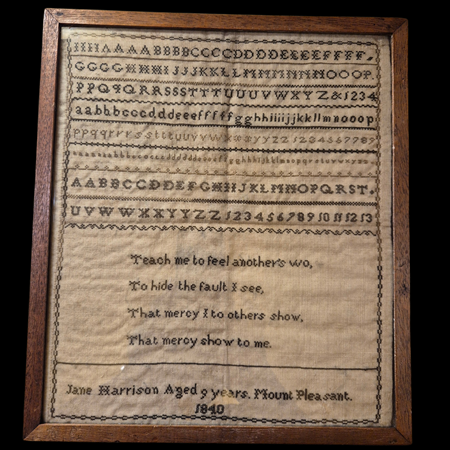 AAAABBBBCCCCDDDDEEEEFFFF.
GGGGHHHIJJJKKLLMMNNNNOOOP.
PPQQQRRSSSTTTUUUVWXYZ&1234
aabbbcccdddeeefffffgghhiiijjkkllmnooop
ppqqrrssstttuuvvwwxxyyzz123456789
AABBCCDDEFGHHIJKLMNOPQRST.
UVWWXXYYZZ12345678910111213
Teach me to feel another's wo,
To hide the fault I see,
That mercy I to others show,
That mercy show to me.
Jane Harrison Aged 9 years. Mount Pleasant.
1840